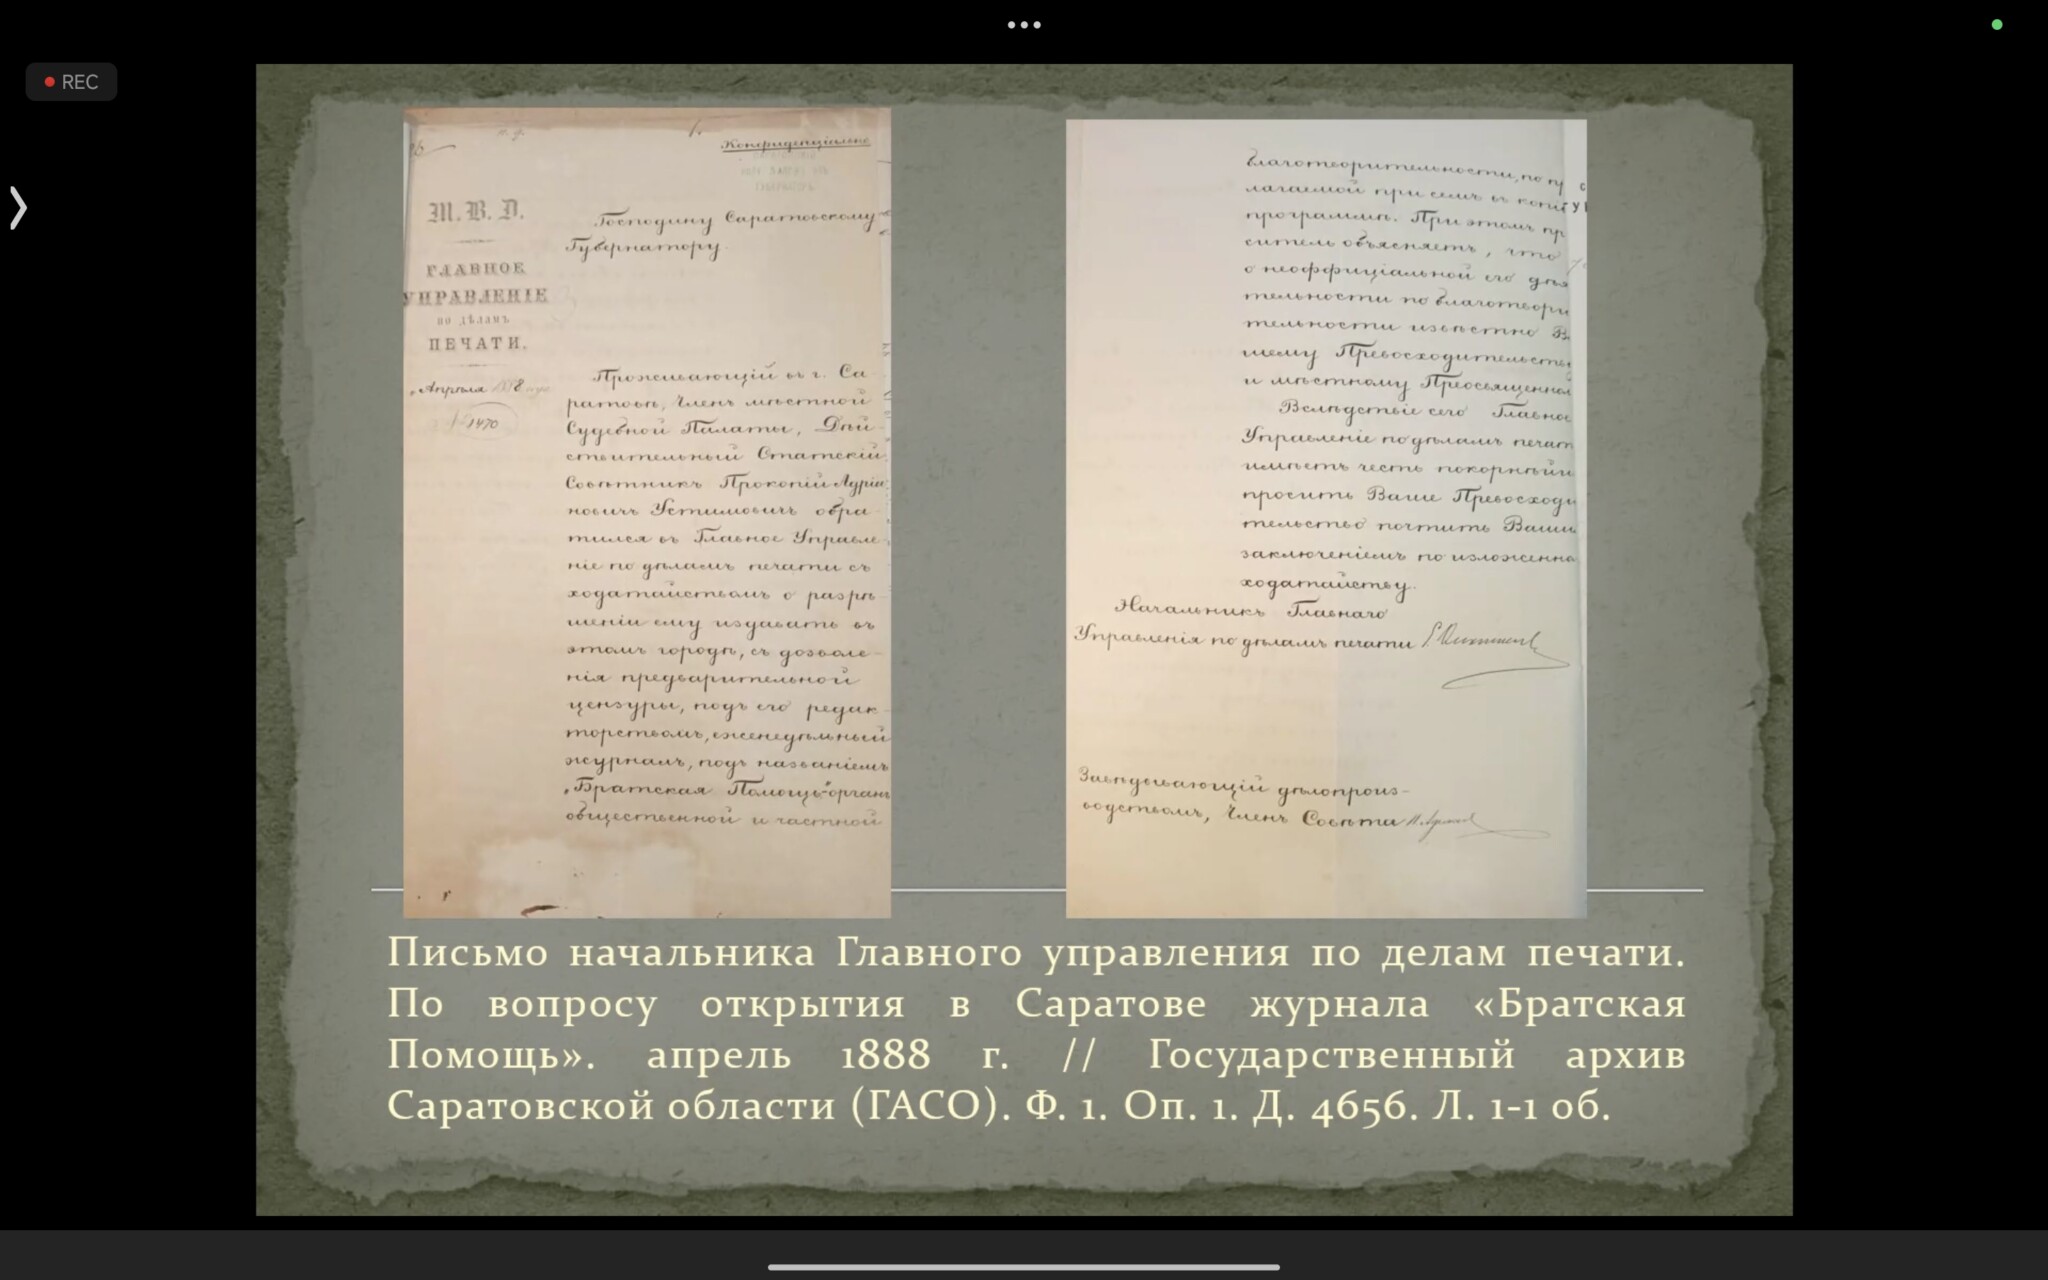 REC
Конфиденціально
М. В. Д.
ГЛАВНОЕ
УПРАВЛЕНІЕ
по дѣламъ
ПЕЧАТИ.
Апрѣля 1888 года
1470
Господину Саратовскому
Губернатору.
Проживающій въ г. Са
ратовѣ, Членъ мѣстной
Судебной Палаты, Дѣй
ствительный Статскій
Совѣтникъ Прокопій Адріа
новичъ Устимовичъ обра
тился въ Главное Управле
ніе по дѣламъ печати съ
ходатайствомъ о разрѣ
шеніи ему издавать въ
этомъ городѣ, съ дозволе
нія предварительной
цензуры, подъ его редак
торствомъ, еженедѣльный
журналъ, подъ названіемъ
„Братская Помощь“ органъ
общественной и частной
благотворительности, по пр
лагаемой при семъ въ копіи
программѣ. При этомъ пр
ситель объясняетъ, что
о неоффиціальной его дѣя
тельности по благотвори
тельности извѣстно Ва
шему Превосходительству
и мѣстному Преосвященном
Вслѣдствіе сего Главное
Управленіе по дѣламъ печати
имѣетъ честь покорнѣйше
просить Ваше Превосходи
тельство почтить Вашим
заключеніемъ по изложенно
ходатайству.
Начальникъ Главнаго
Управленія по дѣламъ печати
Завѣдывающій дѣлопроиз-
водствомъ, Членъ Совѣта
Письмо начальника Главного управления по делам печати.
По вопросу открытия в Саратове журнала «Братская
Помощь». апрель 1888 г. // Государственный архив
Саратовской области (ГАСО). Ф. 1. Оп. 1. Д. 4656. Л. 1-1 об.